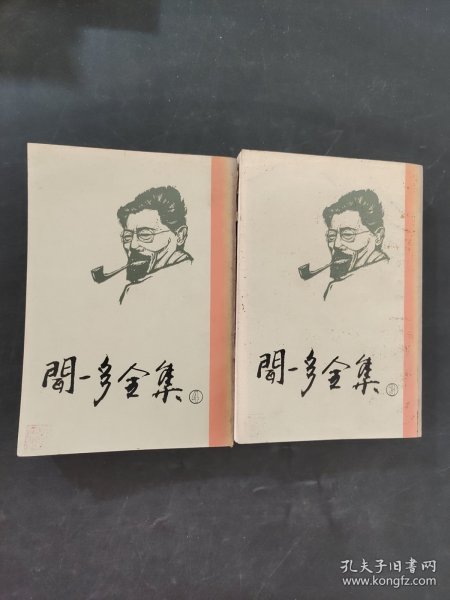 聞一多全集
聞一多全集
孔夫子旧书网
www.kongfz.com